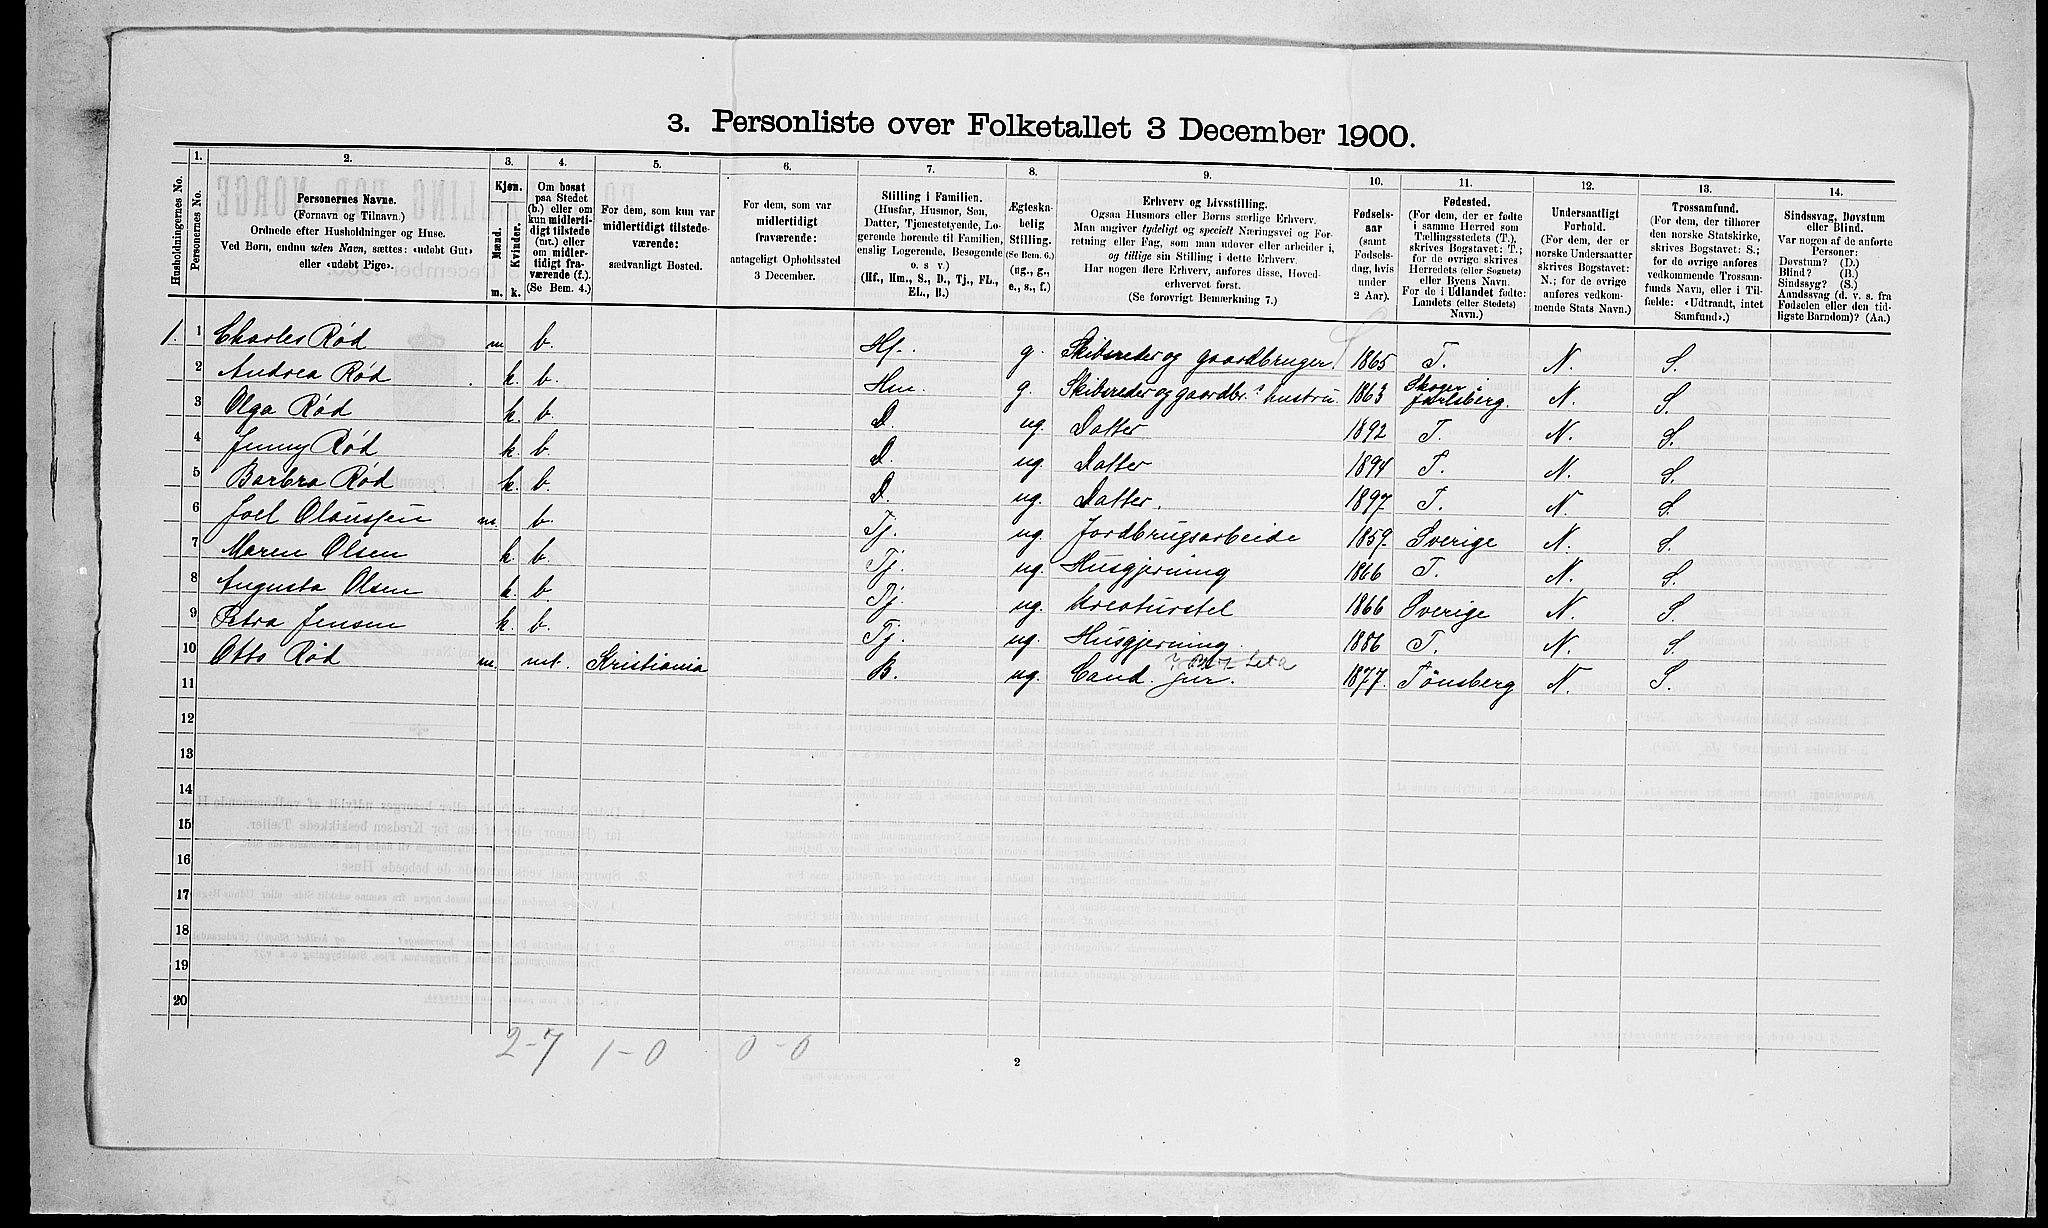 3. Personliste over Folketallet 3 December 1900.
Husholdningernes No.
1. Personernes No.
2. Personernes Navne. (Fornavn og Tilnavn.) Ordnede efter Husholdninger og Huse. Ved Børn, endnu uden Navn, sættes: «udøbt Gut» eller «udøbt Pige».
3. Kjøn. Mænd. m. Kvinder. k.
4. Om bosat paa Stedet (b.) eller om kun midlertidigt tilstede (mt.) eller om midlertidigt fraværende (f.) (Se Bem. 4.)
5. For dem, som kun var midlertidigt tilstedeværende: sædvanligt Bosted.
6. For dem, som var midlertidigt fraværende: antageligt Opholdssted 3 December.
7. Stilling i Familien. (Husfar, Husmor, Søn, Datter, Tjenestetyende, Logerende hørende til Familien, enslig Logerende, Besøgende o. s. v.) (Hf., Hm., S., D., Tj., FL., EL., B.)
8. Ægteskabelig Stilling. (Se Bem. 6.) (ug., g., e., s., f.)
9. Erhverv og Livsstilling. Ogsaa Husmors eller Børns særlige Erhverv. Man angiver tydeligt og specielt Næringsvei og Forretning eller Fag, som man udover eller arbeider i, og tillige sin Stilling i dette Erhverv. Har nogen flere Erhverv, anføres disse, Hovederhvervet først. (Se forøvrigt Bemærkning 7.)
10. Fødselsaar (samt Fødselsdag, hvis under 2 Aar).
11. Fødested. (For dem, der er fødte i samme Herred som Tællingsstedets (T.), skrives Bogstavet: T.; for de øvrige skrives Herredets (eller Sognets) eller Byens Navn. For de i Udlandet fødte: Landets (eller Stedets) Navn.)
12. Undersaatligt Forhold. (For dem, der er norske Undersaatter skrives Bogstavet: N.; for de øvrige anføres vedkommende Stats Navn.)
13. Trossamfund. (For dem, der tilhører den norske Statskirke, skrives Bogstavet: S.; for de øvrige anføres vedkommende Trossamfunds Navn, eller i Tilfælde: «Udtraadt, intet Samfund».)
14. Sindssvag, Døvstum eller Blind. Var nogen af de anførte Personer: Døvstum? (D.) Blind? (B.) Sindssyg? (S.) Aandssvag (d. v. s. fra Fødselen eller den tidligste Barndom)? (Aa.)
1. 1 Charles Rød m. b. Hf. g. Skibsreder og gaardbruger. 1865 T. N. S.
2 Andrea Rød k. b. Hm. g. Skibsreder og gaardbr.s hustru. 1863 Skoger i Jarlsberg. N. S.
3 Olga Rød k. b. — D. ug. Datter 1892 T. N. S.
4 Jenny Rød k. b. D. ug. Datter 1894 T. N. S.
5 Barbra Rød k. b. D. ug. Datter. 1897. T. N. S.
6 Joel Olaussen m. b. Tj. ug. Jordbrugsarbeide 1859. Sverige N. S.
7 Maren Olsen k. b. Tj. ug. Husgjerning 1866 T. N. S.
8 Augusta Olsen k. b. Tj. ug. Kreaturstel 1866 Sverige N. S.
9 Petra Jensen k. b. Tj. ug. Husgjerning. 1886 T. N. S.
10 Otto Rød m. mt. Kristiania B. ug. Cand. jur. 1877. Tønsberg N. S.
11
12
13
14
15
16
17
18
19
20
2-7 1-0 0-0
2